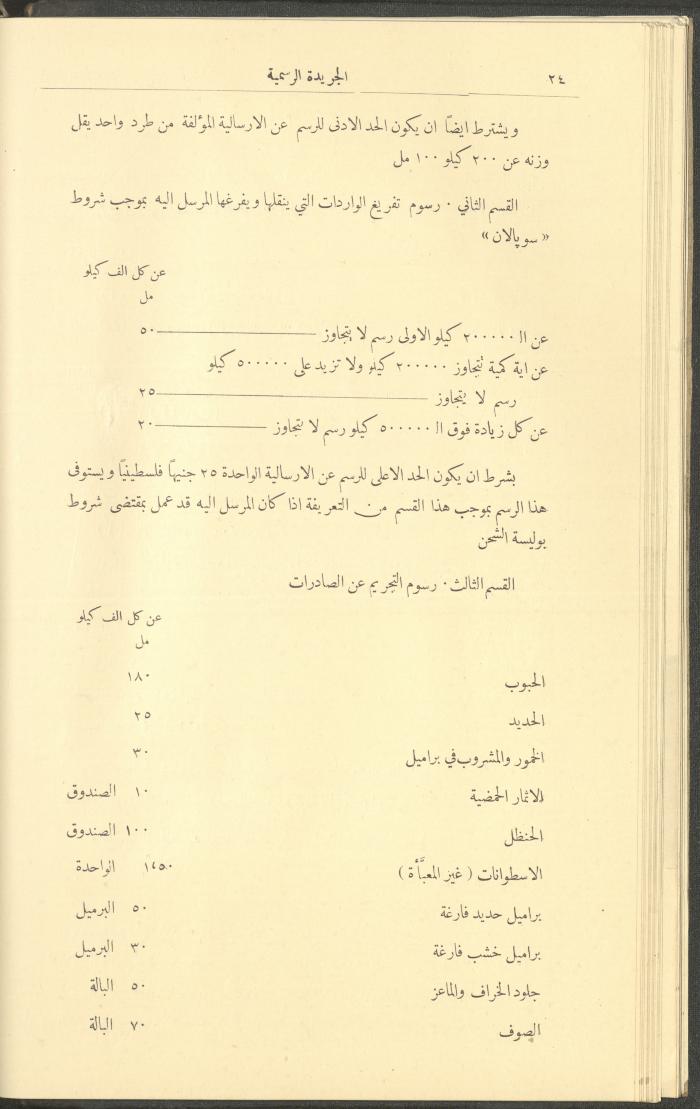 ٢٤ الجريدة الرسمية
ويشترط ايضاً ان يكون الحد الادنى للرسم عن الارسالية المؤلفة من طرد واحد يقل
وزنه عن ٢٠٠ كيلو ١٠٠ مل
القسم الثاني ٠ رسوم تفريغ الواردات التي ينقلها ويفرغها المرسل اليه بموجب شروط
« سوپالان »
عن كل الف كيلو
مل
عن الـ ٢٠٠٠٠٠ كيلو الاولى رسم لا يتجاوز ٥٠
عن اية كمية تتجاوز ٢٠٠٠٠٠ كيلو ولا تزيد على ٥٠٠٠٠٠ كيلو
رسم لا يتجاوز ٢٥
عن كل زيادة فوق الـ ٥٠٠٠٠٠ كيلو رسم لا يتجاوز ٢٠
بشرط ان يكون الحد الاعلى للرسم عن الارسالية الواحدة ٢٥ جنيهاً فلسطينياً ويستوفى
هذا الرسم بموجب هذا القسم من التعريفة اذا كان المرسل اليه قد عمل بمقتضى شروط
بوليسة الشحن
القسم الثالث ٠ رسوم التجريم عن الصادرات
عن كل الف كيلو
مل
الحبوب ١٨٠
الحديد ٢٥
الخمور والمشروب في براميل ٣٠
الاثمار الحمضية ١٠ الصندوق
الحنظل ١٠٠ الصندوق
الاسطوانات ( غير المعبَّأة ) الواحدة
براميل حديد فارغة ٥٠ البرميل
براميل خشب فارغة ٣٠ البرميل
جلود الخراف والماعز ٥٠ البالة
الصوف ٧٠ البالة